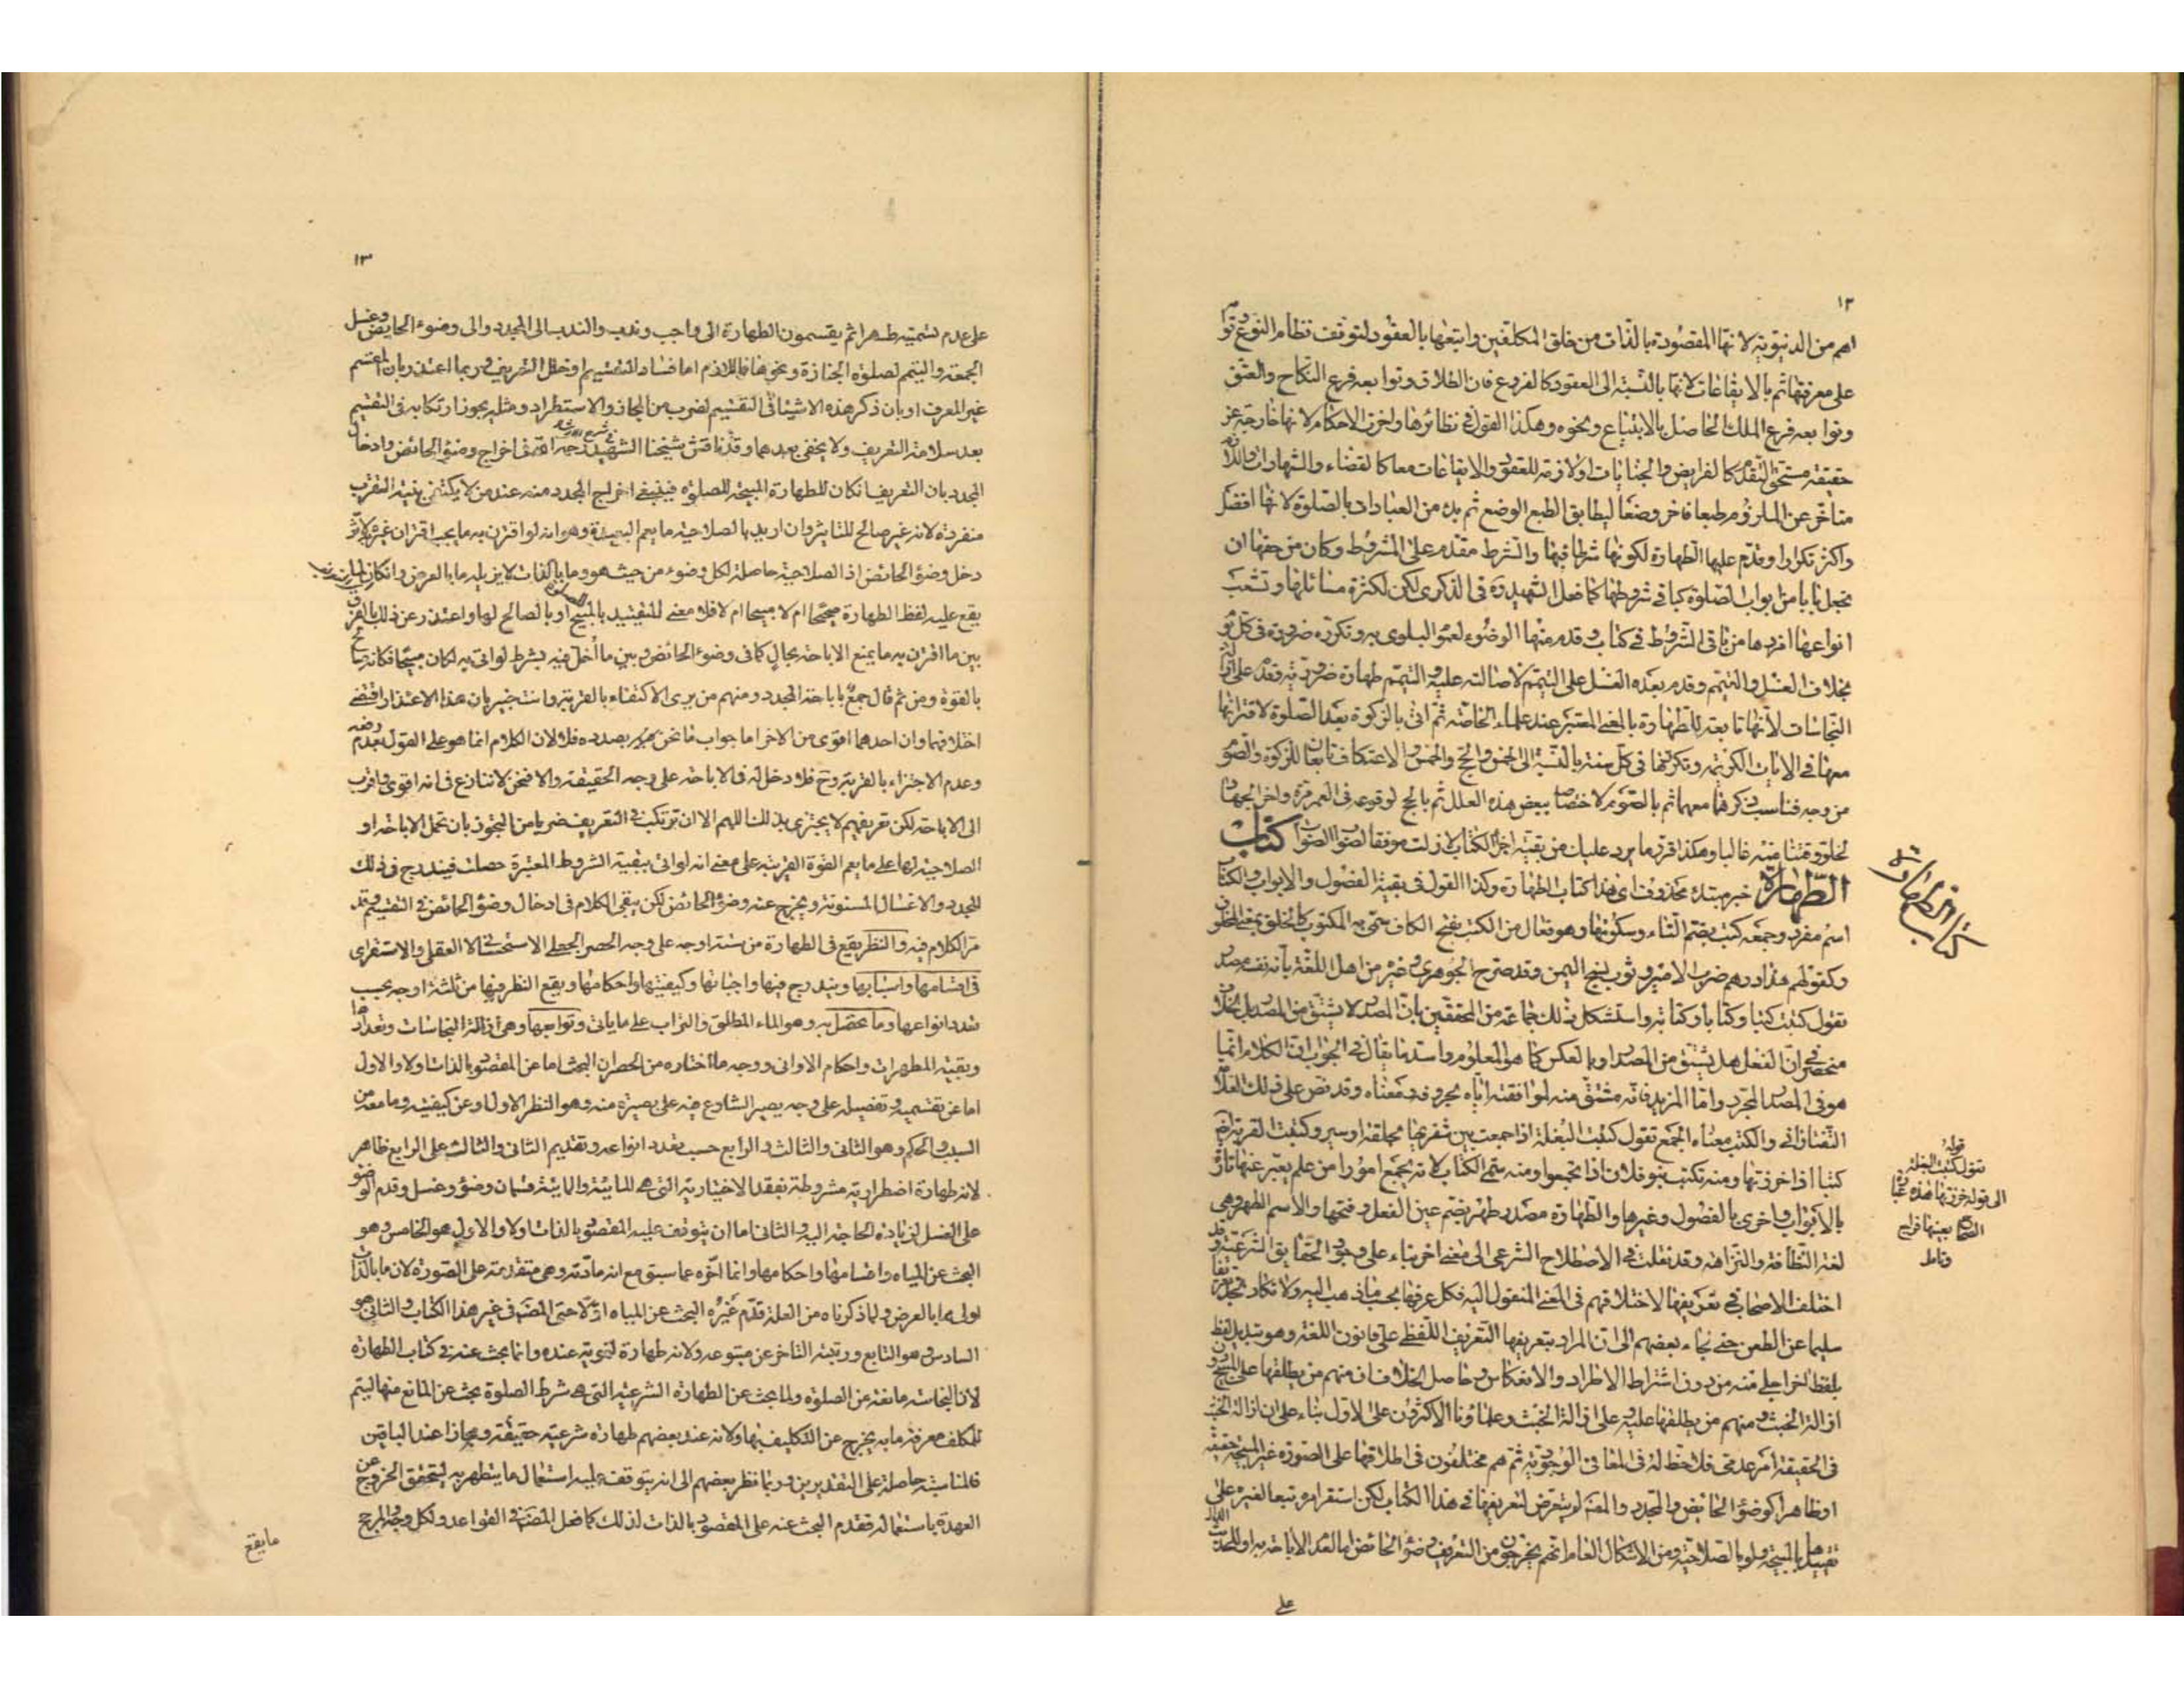 ١٢
اهم من الدنيوية لانها المقصودة بالذات من خلق المكلفين واتبعها بالعقود لتوقف نظام النوع وقوا
على معرفتها ثم بالايقاعات لانها بالنسبة الى العقود كالفروع فان الطلاق وتوابعه فرع النكاح والعتق
وتوابعه فرع الملك الحاصل بالابتياع ونحوه وهكذا القول في نظائرها واخر الاحكام لانها خارجة عن
حقيقة مستحق التقدم كالفرايض والجنايات او لازمة للعقود والايقاعات معا كالقضاء والشهادات واللازم
متاخر عن الملزوم طبعا فاخر وضعا ليطابق الطبع الوضع ثم بدء من العبادات بالصلوة لانها افضل
واكثر تكرارا وقدم عليها الطهارة لكونها شرطا فيها والشرط مقدم على المشروط وكان من حقها ان
تجعل بابا من ابواب الصلوة كباقي شروطها كما فعل الشهيد ره في الذكرى لكن لكثرة مسائلها وتشعب
انواعها افردها من باقي الشروط في كتاب وقدم منها الوضوء لعموم البلوى به وتكرره ضرورة في كل يوم
بخلاف الغسل والتيمم وقدم بعده الغسل على التيمم لاصالته عليه والتيمم طهارة ضرورية وقدم على ازالة
النجاسات لانها تابعة للطهارة بالمعنى المعتبر عند علماء الخاصة ثم اتى بالزكوة بعد الصلوة لاقترانها
معها في الايات الكريمة وتكررها في كل سنة بالنسبة الى الخمس والحج والخمس والاعتكاف تابعا للزكوة والصوم
من وجه فناسب ذكرهما معهما ثم بالصوم لاختصاصه ببعض هذه العلل ثم بالحج لوقوعه في العمر مرة واخر الجهاد
لخلو وقتنا منه غالبا وهكذا قرر ما يرد عليك من بقية اجزاء الكتاب لازلت موفقا لصوب الصواب كتاب
الطهارة خبر مبتدء محذوف اى هذا كتاب الطهارة وكذا القول في بقية الفصول والابواب والكتاب
اسم مفرد وجمعه كتب بضم التاء وسكونها وهو فعال من الكتب بفتح الكاف سمى به المكتوب كالخلق بمعنى المخلوق
وكقولهم هذا درهم ضرب الامير وثوب نسج اليمن وقد صرح الجوهرى وغيره من اهل اللغة بانه نفسه مصدر
تقول كتبت كتبا وكتابا وكتابة واستشكل ذلك جماعة من المحققين بان المصدر لا يشتق من المصدر بل الخلاف
منحصر في ان الفعل هل يشتق من المصدر او بالعكس كما هو المعلوم واسد ما يقال في الجواب ان الكلام انما
هو في المصدر المجرد واما المزيد فانه مشتق منه لموافقته اياه بحروفه ومعناه وقد نص على ذلك العلامة
التفتازاني والكتب معناه الجمع تقول كتبت البغلة اذا جمعت بين شفريها بحلقة او سير وكتبت القربة ايضا
كتبا اذا خرزتها ومنه تكتب بنو فلان اذا تجمعوا ومنه سمى الكتاب لانه يجمع امورا من علم يعبر عنها تارة
بالابواب واخرى بالفصول وغيرها والطهارة مصدر طهر بضم عين الفعل وفتحها والاسم الطهر وهى
لغة النظافة والنزاهة وقد نقلت في الاصطلاح الشرعى الى معنى اخر بناء على وجود الحقايق الشرعية وقد
اختلف الاصحاب في تعريفها لاختلافهم في المعنى المنقول اليه فكل عرفها بحسب ما ذهب اليه ولا تكاد تجد تعريفا
سليما عن الطعن حتى نجاء بعضهم الى ان المراد بتعريفها التعريف اللفظى على قانون اللغة وهو تبديل لفظ
بلفظ اخر اجلى منه من دون اشتراط الاطراد والانعكاس وحاصل الخلاف ان منهم من يطلقها على المبيح دون
ازالة الخبث ومنهم من يطلقها عليه وعلى ازالة الخبث وعلماؤنا الاكثرون على الاول بناء على ان ازالة الخبث
في الحقيقة امر عدمى فلا حظ له في المعانى الوجودية ثم هم مختلفون في اطلاقها على الصورة غير المبيحة حقيقة
او ظاهرا كوضوء الحايض والمجدد والمص لم يتعرض لتعريفها في هذا الكتاب لكن استقرامره تبعا لغيره على
تقييدها بالمبيحة ولو بالصلاحية ومن الاشكال العام انهم يخرجون من التعريف وضوء الحائض اما لعدم الاباحة به او للحديث الدال
على
كتاب الطهارة
قوله
تقول كتبت البغلة
الى قوله خرزتها هذه عبارة
الصحاح بعينها فراجع
وتامل
١٣
على عدم تسميته طهرا ثم يقسمون الطهارة الى واجب وندب والندب الى المجدد والى وضوء الحايض وغسل
الجمعة والتيمم لصلوة الجنازة ونحوها فاللازم اما فساد التقسيم او خلل التعريف وربما اعتذر بان المقسم
غير المعرف او بان ذكر هذه الاشياء في التقسيم لضرب من المجاز والاستطراد ومثله يجوز ارتكابه في التقسيم
بعد سلامة التعريف ولا يخفى بعدهما وقد ناقش شيخنا الشهيد ره في شرح الارشاد اخراج وضوء الحائض وادخال
المجدد بان التعريف ان كان للطهارة المبيحة للصلوة فينبغى اخراج المجدد منه عند من لا يكتفى بنية التقرب
منفردة لانه غير صالح للتاثير وان اريد بالصلاحية ما يعم البعيدة وهو انه لو اقترن به ما يجب اقتران غيره لاثر
دخل وضوء الحائض اذ الصلاحية حاصلة لكل وضوء من حيث هو وما بالذات لا يزيله ما بالعرض وان كان
يقع عليه لفظ الطهارة مبيحا ام لا مبيحا ام لا فلا معنى للتقييد بالمبيح او بالصالح لها واعتذر عن ذلك بالفرق
بين ما اقترن به ما يمنع الاباحة بحال كما في وضوء الحائض وبين ما اخل فيه بشرط لو اتى به لكان مبيحا فكانه مبيح
بالقوة ومن ثم قال جمع باباحة المجدد ومنهم من يرى الاكتفاء بالقربة وانت خبير بان هذا الاعتذار اقتضى
اختلافهما وان احدهما اقوى من الاخر اما جواب ما نحن بصدده فلا لان الكلام انما هو على القول بعدم رفعه
وعدم الاجتزاء بالقربة وح فلا دخل له في الاباحة على وجه الحقيقة والا فنحن لا ننازع في انه اقوى واقرب
الى الاباحة لكن تعريفهم لا يجتزى بذلك اللهم الا ان ترتكب في التعريف ضربا من التجوز بان تحمل الاباحة او
الصلاحية لها على ما يعم القوة القريبة على معنى انه لو اتى ببقية الشروط المعتبرة حصلت فيندرج في ذلك
المجدد والاغسال المسنونة ويخرج عنه وضوء الحائض لكن يبقى الكلام في ادخال وضوء الحائض في التقسيم وقد
مر الكلام فيه والنظر يقع في الطهارة من ستة اوجه على وجه الحصر الجعلى الاستحسانى لا العقلى والاستقرائى
في اقسامها واسبابها ويندرج فيها واجباتها وكيفيتها واحكامها ويقع النظر فيها من ثلثة اوجه بحسب
تعدد انواعها وما تحصل به وهو الماء المطلق والتراب على ما ياتى وتوابعها وهى ازالة النجاسات وتعدادها
وبقية المطهرات واحكام الاوانى ووجه ما اختاره من الحصر ان البحث اما عن المقصود بالذات اولا والاول
اما عن تقسيمه وتفصيله على وجه يصير الشارع فيه على بصيرة منه وهو النظر الاول او عن كيفيته وما معه من
السبب والحكم وهو الثانى والثالث والرابع حسب تعدد انواعه وتقديم الثانى والثالث على الرابع ظاهر
لانه طهارة اضطرارية مشروطة بفقد الاختيارية التى هى المائية والمائية قسمان وضوء وغسل وقدم الوضوء
على الغسل لزيادة الحاجة اليه والثانى اما ان يتوقف عليه المقصود بالذات اولا والاول هو الخامس وهو
البحث عن المياه واقسامها واحكامها وانما اخره عما سبق مع انه مادته وهى متقدمة على الصورة لان ما بالذات
اولى مما بالعرض ولما ذكرناه من العلة قدم غيره البحث عن المياه اولا حتى المص في غير هذا الكتاب والثانى هو
السادس وهو التابع ورتبته التاخر عن متبوعه ولانه طهارة لغوية عنده وانما بحث عنه في كتاب الطهارة
لان النجاسة مانعة عن الصلوة ولما بحث عن الطهارة الشرعية التى هى شرط الصلوة بحث عن المانع منها ليتم
للمكلف معرفة ما به يخرج عن التكليف بها ولانه عند بعضهم طهارة شرعية حقيقة ومجازا عند الباقين
فالمناسبة حاصلة على التقديرين وربما نظر بعضهم الى انه يتوقف عليه استعمال ما يتطهر به ليتحقق الخروج عن
العهدة باستعماله فقدم البحث عنه على المقصود بالذات لذلك كما فعل المص في القواعد ولكل وجه المرجح
ما يقع